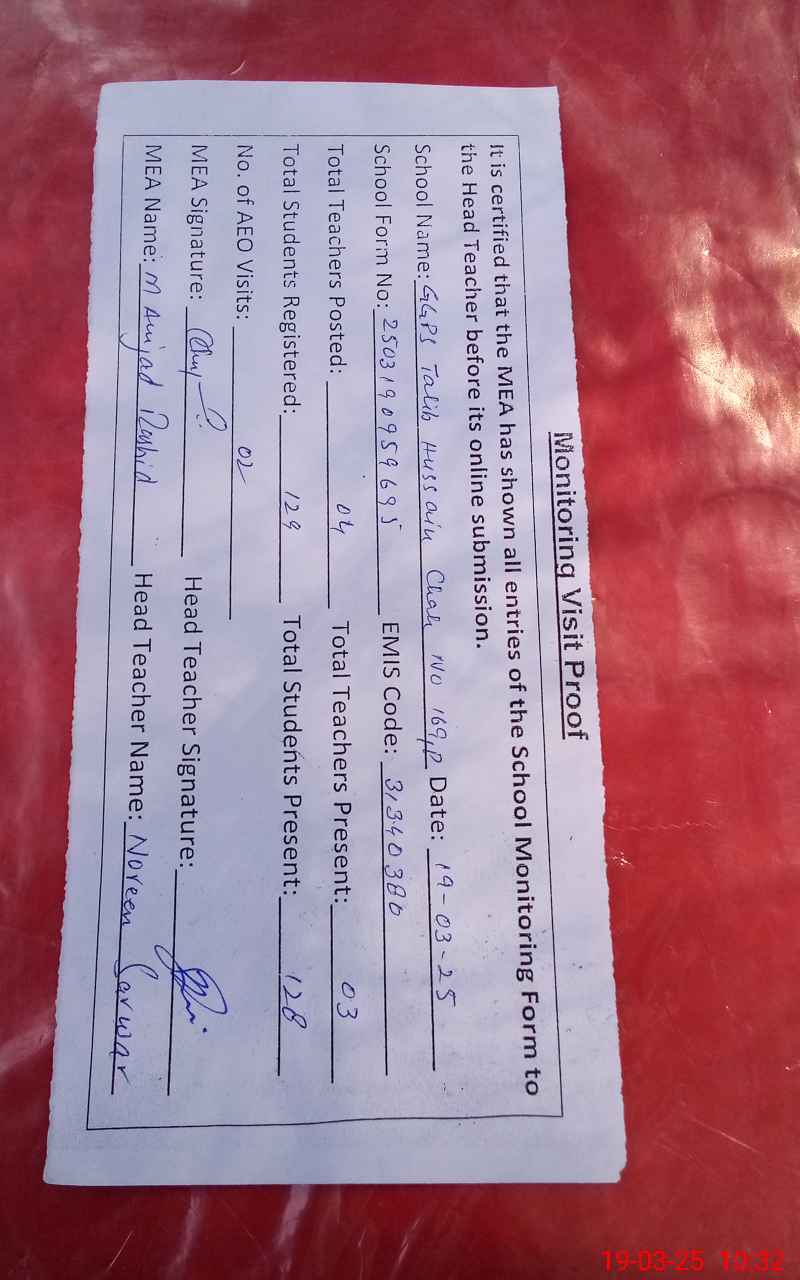 Monitoring Visit Proof
It is certified that the MEA has shown all entries of the School Monitoring Form to
the Head Teacher before its online submission.
School Name: GGPS Talib Hussain Chak No 169,P Date: 19-03-25
School Form No: 250319095969​5 EMIS Code: 31340380
Total Teachers Posted: 04 Total Teachers Present: 03
Total Students Registered: 129 Total Students Present: 128
No. of AEO Visits: 02
MEA Signature: Head Teacher Signature:
MEA Name: M Amjad Rashid Head Teacher Name: Noreen Sarwar
19-03-25 10:32